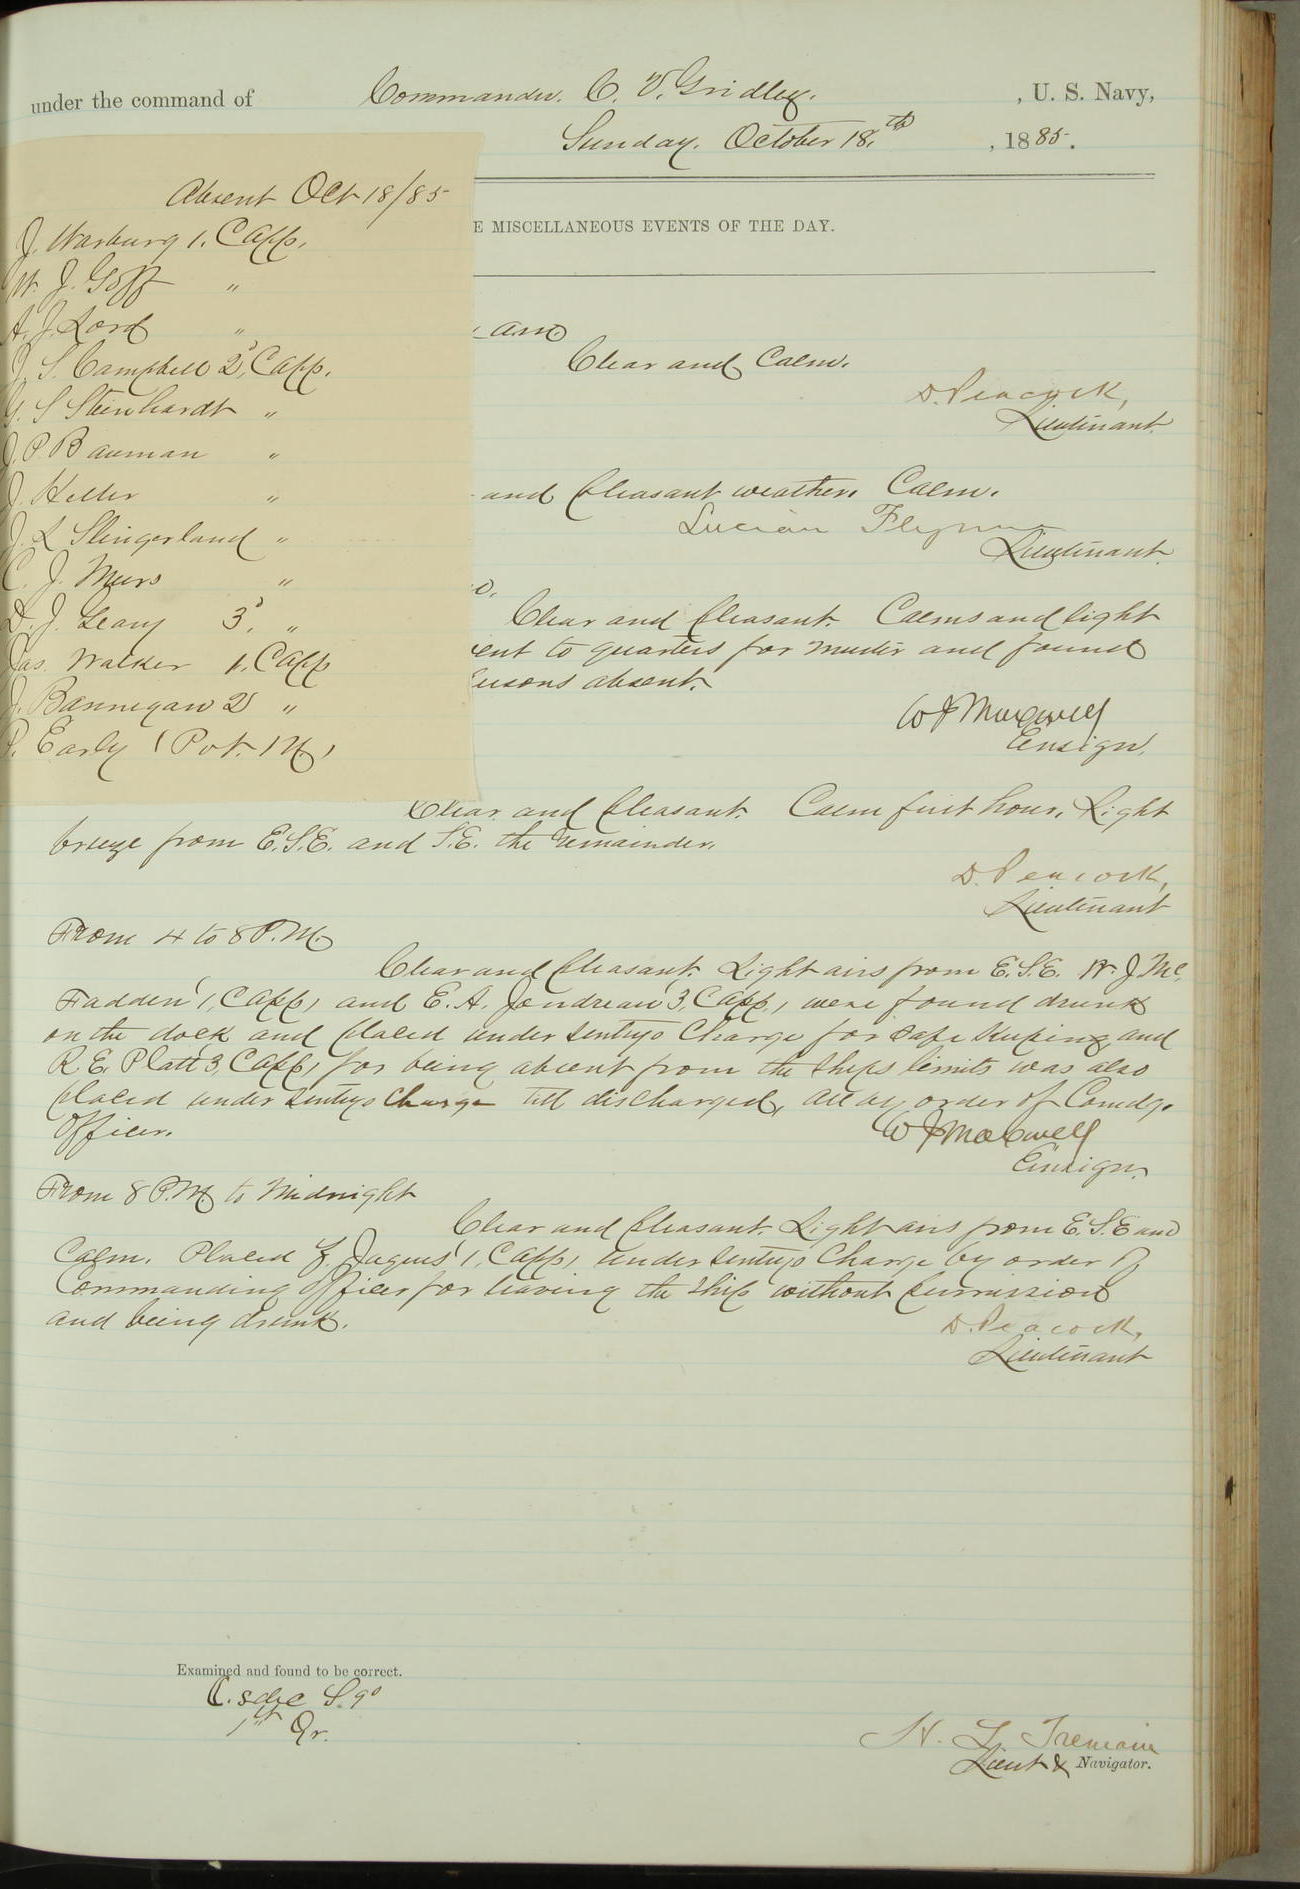 under the command of Commander. C. V. Gridley. , U. S. Navy,
Sunday. October 18,th , 1885.
E MISCELLANEOUS EVENTS OF THE DAY.
Absent Oct 18/85
J. Warburg 1. Capp.
W. J. Goff "
A. J. Lord "
J. S. Campbell 2, Capp.
G. S Steinhardt "
J. P. Bauman "
J. Keller "
J. L Slingerland "
C. J. Meers "
D. J. Leary 3, "
Jas. Walker 1, Capp
J. Bannegan 2 "
P. Early (Pot. 1 M,
am
Clear and Calm.
D. Peacock,
Lieutenant.
and pleasant weather. Calm.
Lucian Flynne
Lieutenant.
Clear and pleasant. Calms and light
ent to quarters for muster and found
ersons absent.
W J Maxwell
Ensign.
Clear and pleasant. Calm first hour, Light
breeze from E.S.E. and S.E. the remainder.
D. Peacock,
Lieutenant
From 4 to 8 P.M.
Clear and pleasant. Light airs from E.S.E. W. J. Mc
Fadden 1, Capp, and E. A. Jendreau 3, Capp, were found drunk
on the dock and placed under sentrys charge for safe keeping and
R. E. Platt 3, Capp, for being absent from the ships limits was also
placed under sentrys charge till discharged, all by order of Comdg.
Officer.
W J Maxwell
Ensign.
From 8 P.M. to Midnight
Clear and pleasant. Light airs from E.S.E and
Calm. Placed F. Jaques 1, Capp, under sentrys charge by order of
Commanding Officer for leaving the ship without permission
and being drunk.
D. Peacock,
Lieutenant
Examined and found to be correct.
H. L. Tremain
Lieut & Navigator.